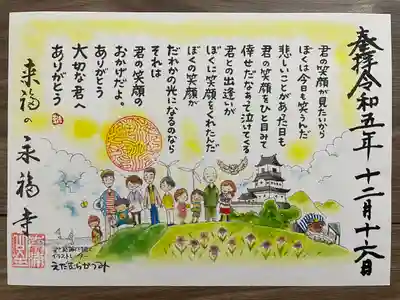 奉拝 令和五年 十二月十六日
君の笑顔が見たいから
ぼくは今日も笑うんだ
悲しいことがあった日も
君の笑顔をひと目みて
倖せだなぁって泣けてくる
君との出逢いが
ぼくに笑顔をくれたんだ
ぼくの笑顔が
だれかの光になるのなら
それは
君の笑顔の
おかげだよ。
ありがとう
大切な君へ
ありがとう
来福の永福寺
イラストレーター
えだむらかづみ